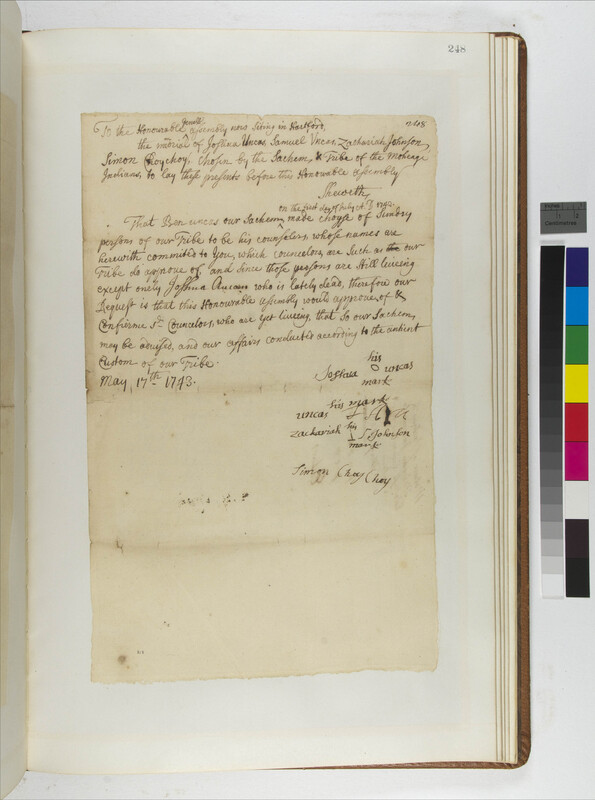 248
248
To the Honourable Genll assembly now Siting in Hartford,
the memorial of Joshua Uncas, Samuel Uncas, Zachariah Johnson,
Simon Choychoy, Chosen by the Sachem, & Tribe of the Moheage
Indians, to lay these presents before this Honourable assembly
Sheweth,
on the first day of July A.D. 1742
That Ben uncas our Sachem, made choyse of Sundry
persons of our Tribe to be his counselors, whose names are
herewith commited to You, which councelors, are Such as the our
Tribe do approve of, and since those persons are still liveing
except onely Joshua who is lately dead, therefore our
Request is that this Honourable assembly would approve of &
Confirme sd. Councelors, who are yet liveing, that So our Sachem,
may be advised, and our affairs conducted according to the antient
Custom of our Tribe.
May 17th 1743.
his
Joshua O uncas
mark
his mark
uncas
Zachariah his Johnson
mark
Simon Choy Choy